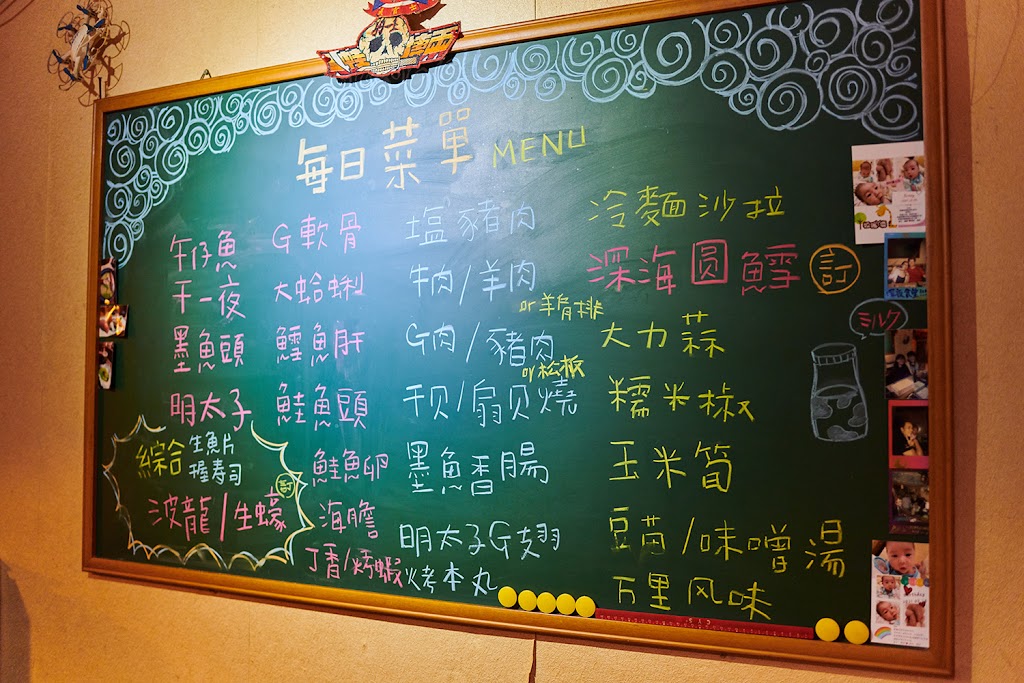 每日菜單 MENU
午仔魚
干一夜
墨魚頭
明太子
綜合 生魚片
握壽司
訂
波龍/生蠔
G軟骨
大蛤蜊
鱈魚肝
鮭魚頭
鮭魚卵
海膽
丁香/烤蝦
塩豬肉
牛肉/羊肉
or羊肩排
G肉/豬肉
or松板
干贝/扇贝燒
墨魚香腸
明太子G翅
烤本丸
冷麵沙拉
深海圆鱈 訂
大力蒜
糯米椒
玉米筍
豆苗/味噌湯
万里风味
ミルク